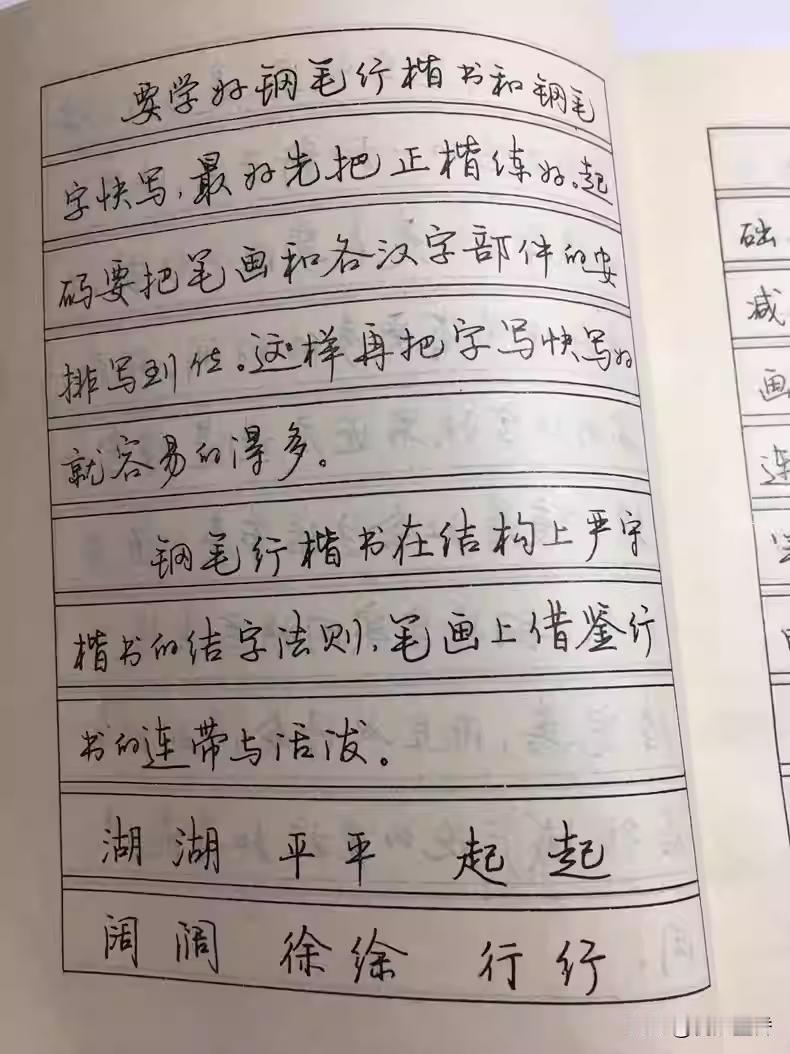 要学好钢毛行楷书和钢毛
字快写,最好先把正楷练好。起
码要把笔画和各汉字部件的安
排写到位。这样再把字写快写好
就容易的得多。
钢毛行楷书在结构上严守
楷书的结字法则,笔画上借鉴行
书的连带与活泼。
湖 湖 平 平 起 起
阔 阔 徐 徐 行 行
础
减
画
连